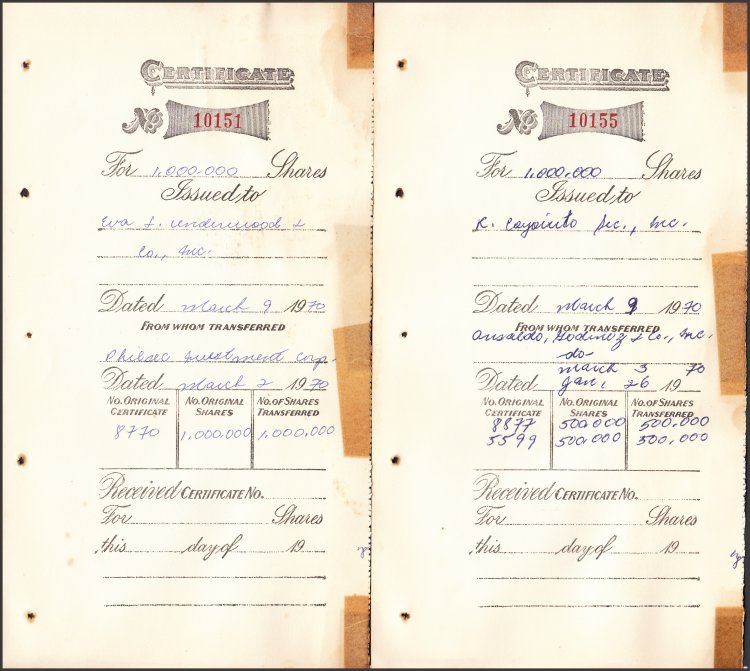 CERTIFICATE
No 10151
For 1,000.000 Shares
Issued to
Eva L. Underwood &
Co., Inc.
Dated March 9 1970
FROM WHOM TRANSFERRED
Philsec Investment Corp.
Dated March 2 1970
NO. ORIGINAL CERTIFICATE NO. ORIGINAL SHARES NO. OF SHARES TRANSFERRED
8770 1,000.000 1,000.000
Received CERTIFICATE NO.
For Shares
this day of 19
CERTIFICATE
No 10155
For 1,000,000 Shares
Issued to
R. Coyiuto Sec., Inc.
Dated March 9 1970
FROM WHOM TRANSFERRED
Ansaldo, Godinez & Co., Inc.
-do-
March 3 70
Dated Jan. 26 19
NO. ORIGINAL CERTIFICATE NO. ORIGINAL SHARES NO. OF SHARES TRANSFERRED
8877 500.000 500.000
5599 500.000 500.000
Received CERTIFICATE NO.
For Shares
this day of 19